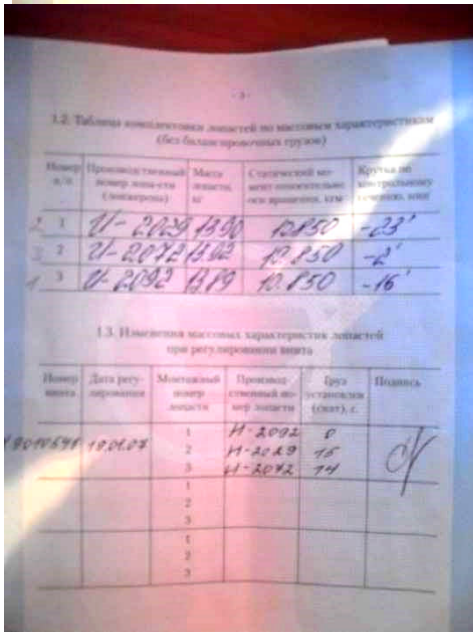 - 3 -
1.2. Таблица комплектовки лопастей по массовым характеристикам
(без балансировочных грузов)
Номер п/п Производственный номер лопасти (лонжерона) Масса лопасти, кг Статический момент относительно оси вращения, кгм Крутка по контрольному сечению, мин
2 1 И-2029 13.90 10.850 -23'
3 2 И-2072 13.92 10.850 -2'
1 3 И-2092 13.89 10.850 -16'
1.3. Изменения массовых характеристик лопастей
при регулировании винта
Номер винта Дата регулирования Монтажный номер лопасти Производственный номер лопасти Груз установлен (снят), г. Подпись
1 И-2092 0
19.01.07 2 И-2029 15
3 И-2072 14
1
2
3
1
2
3